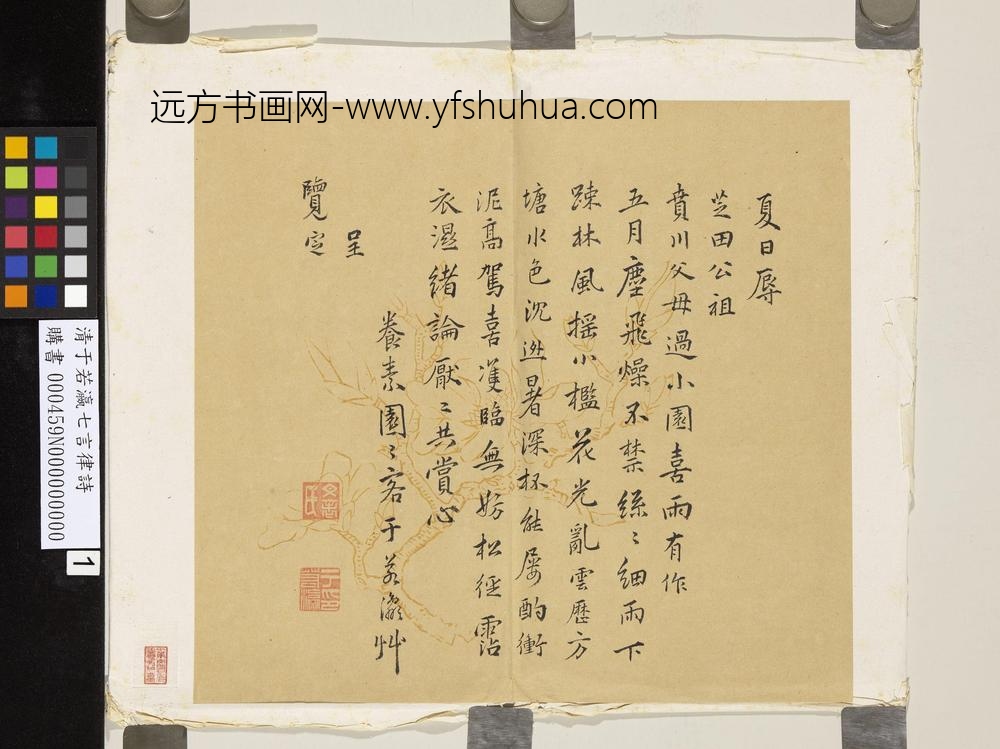 远方书画网-www.yfshuhua.com
夏日辱
芝田公祖
賁川父母過小園喜雨有作
五月塵飛燥不禁絲〻細雨下
踈林風揺小檻花光亂雲歷方
塘水色沉逃暑深杯能屢酌衝
泥高駕喜
臨無妨松徑霑
衣濕緒論厭〻共賞心
養素園〻客于若瀛艸
呈
覽定
清于若瀛七言律詩
購書 000459N000000000
1